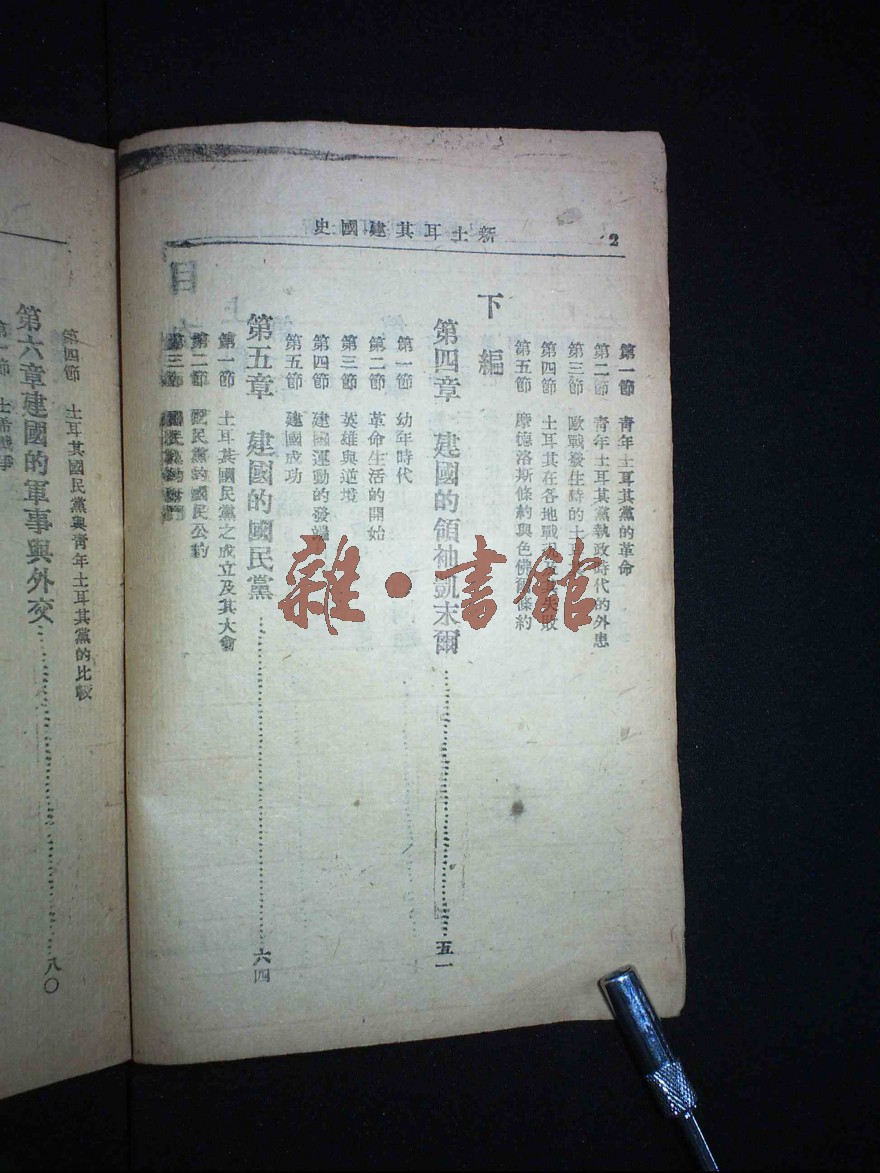 新土耳其建國史 2
第一節 青年土耳其黨的革命
第二節 青年土耳其黨執政時代的外患
第三節 歐戰發生時的土
第四節 土耳其在各地戰況 失敗
第五節 摩德洛斯條約與色佛 條約
下編
第四章 建國的領袖凱末爾 五一
第一節 幼年時代
第二節 革命生活的開始
第三節 英雄與逆境
第四節 建國運動的發端
第五節 建國成功
第五章 建國的國民黨 六四
第一節 土耳其國民黨之成立及其大會
第二節 國民黨的國民公約
第三節 國民黨的
第四節 土耳其國民黨與青年土耳其黨的比較
第六章 建國的軍事與外交 八〇
第一節 土希戰爭
雜·書館